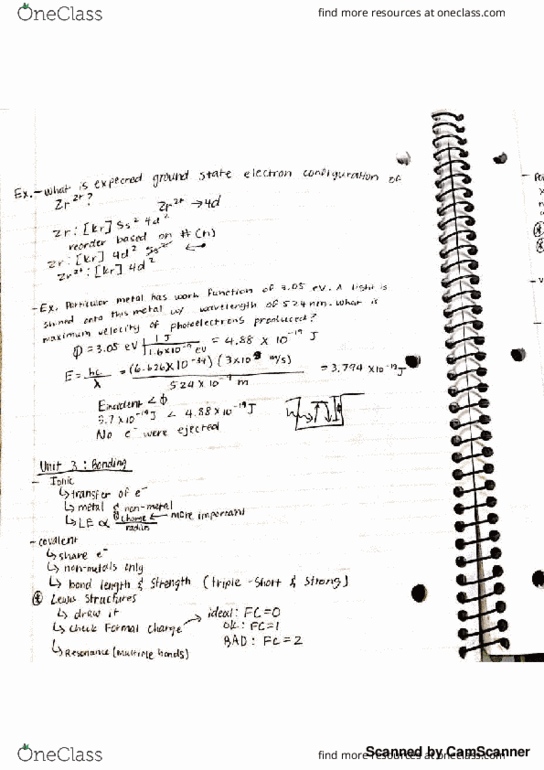 OneClass
find more resources at oneclass.com
Ex. - What is expected ground state electron configuration of
Zr²⁺?
Zr²⁺ → 4d
Zr : [Kr] 5s² 4d²
reorder based on # (n)
Zr : [Kr] 4d² 5s²
Zr²⁺ : [Kr] 4d²
- Ex. Particular metal has work function of 3.05 eV. A light is
shined onto this metal w/ wavelength of 524 nm. What is
maximum velocity of photoelectrons produced?
Φ = 3.05 eV | 1 J / 1.6×10⁻¹⁹ eV = 4.88 × 10⁻¹⁹ J
E = hc / λ = (6.626×10⁻³⁴)(3×10⁸ m/s) / 524 × 10⁻⁹ m = 3.794 ×10⁻¹⁹ J
Eincident < Φ
3.7 ×10⁻¹⁹ J < 4.88×10⁻¹⁹ J
No e⁻ were ejected
Unit 3 : Bonding
- Ionic
↳ transfer of e⁻
↳ metal & non-metal
↳ LE ∝ charge / radius ← more important
- covalent
↳ share e⁻
↳ non-metals only
↳ bond length & strength (triple - short & strong)
Lewis Structures
↳ draw it
↳ check Formal Charge → ideal : FC = 0
ok : FC = 1
BAD : FC = 2
↳ Resonance (multiple bonds)
Scanned by CamScanner
OneClass
find more resources at oneclass.com